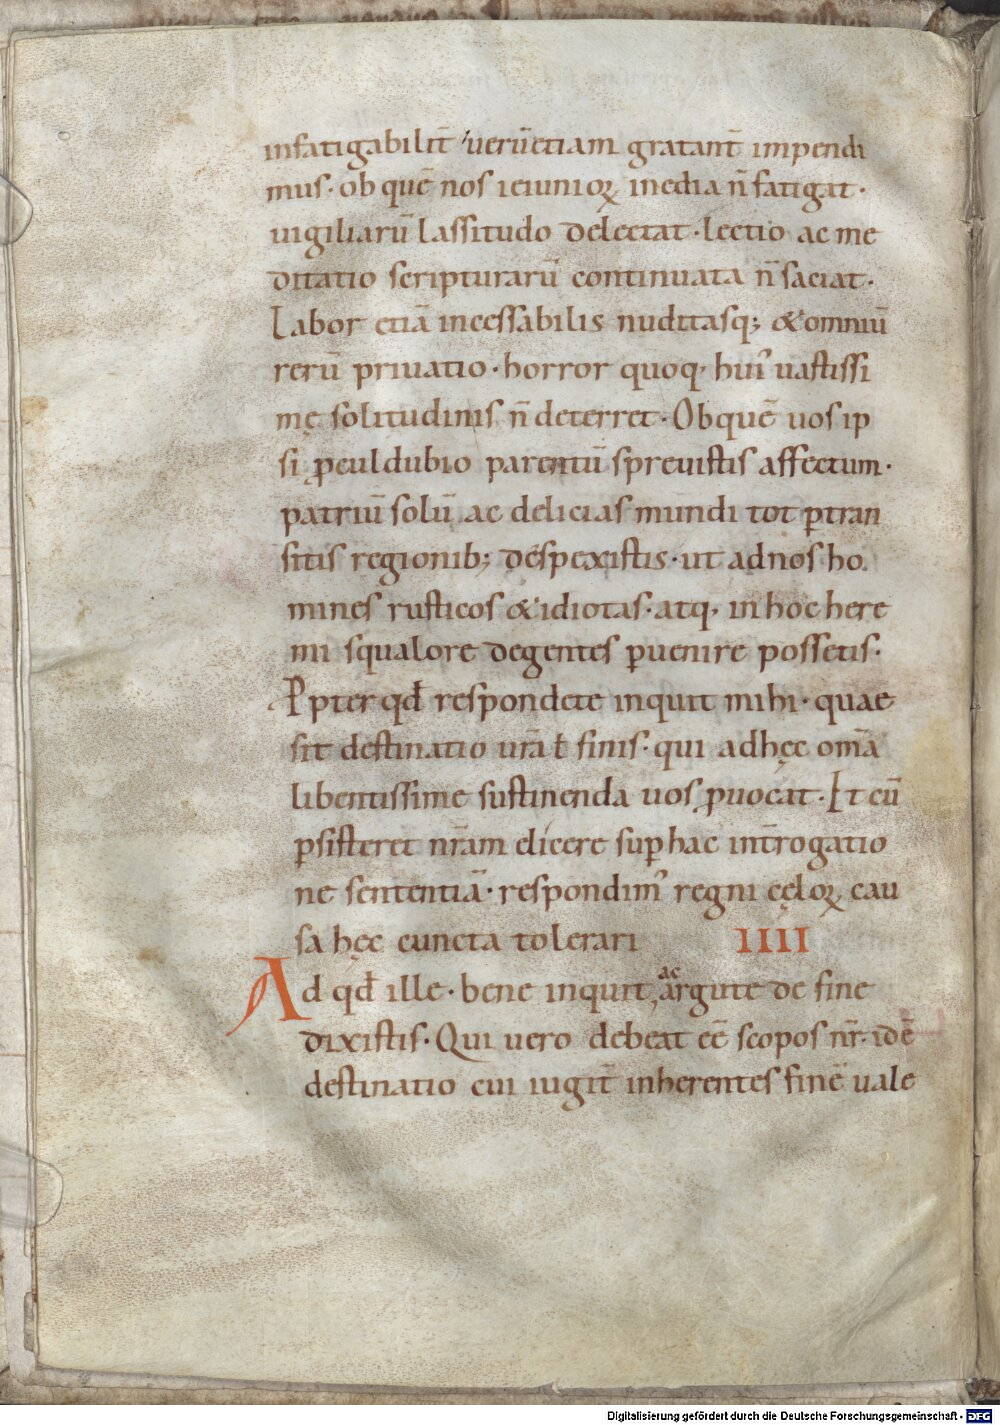 infatigabilit̄ uerūetiam gratant̄ impendi
mus· ob quē nos ieiunioꝝ inedia n̄ fatigat·
uigiliarū lassitudo delectat· lectio ac me
ditatio scripturarū continuata n̄ saciat·
Labor etiā incessabilis nuditasq; & omniū
rerū priuatio· horror quoq, hui᾽ uastissi
mę solitudinis n̄ deterret· Ob quē uos ip
si ꝓculdubio parentū spreuistis affectum·
patriū solū ac delicias mundi tot ꝑtran
sitis regionib; despexistis· ut ad nos ho
mines rusticos & idiotas· atq, in hoc here
mi squalore degentes ꝑuenire possetis·
Ppter qđ respondete inquit mihi· quae
sit destinatio ur̄a ł finis· qui ad hęc om̄a
libentissime sustinenda uos ꝓuocat· Et cū
ꝑsisteret nr̄am elicere suꝑ hac int̄rogatio
ne sententiā· respondim᾽ regni cęloꝝ cau
sa hęc cuncta tolerari IIII
Ad qđ ille· bene inquit, ac argute de fine
dixistis· Qui uero debeat eē scopos nr̄· idē
destinatio cui iugit̄ inherentes finē uale
Digitalisierung gefördert durch die Deutsche Forschungsgemeinschaft - DFG